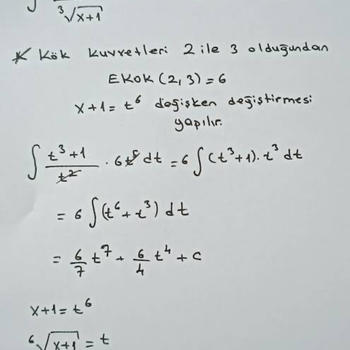 ∫ ³√x+1
* Kök kuvvetleri 2 ile 3 olduğundan
EKOK(2,3)=6
x+1=t⁶ değişken değiştirmesi
yapılır.
∫ (t³+1)/t² · 6t⁵ dt = 6 ∫ (t³+1)·t³ dt
= 6 ∫ (t⁶+t³) dt
= 6/7 t⁷ + 6/4 t⁴ + c
x+1=t⁶
⁶√x+1 = t